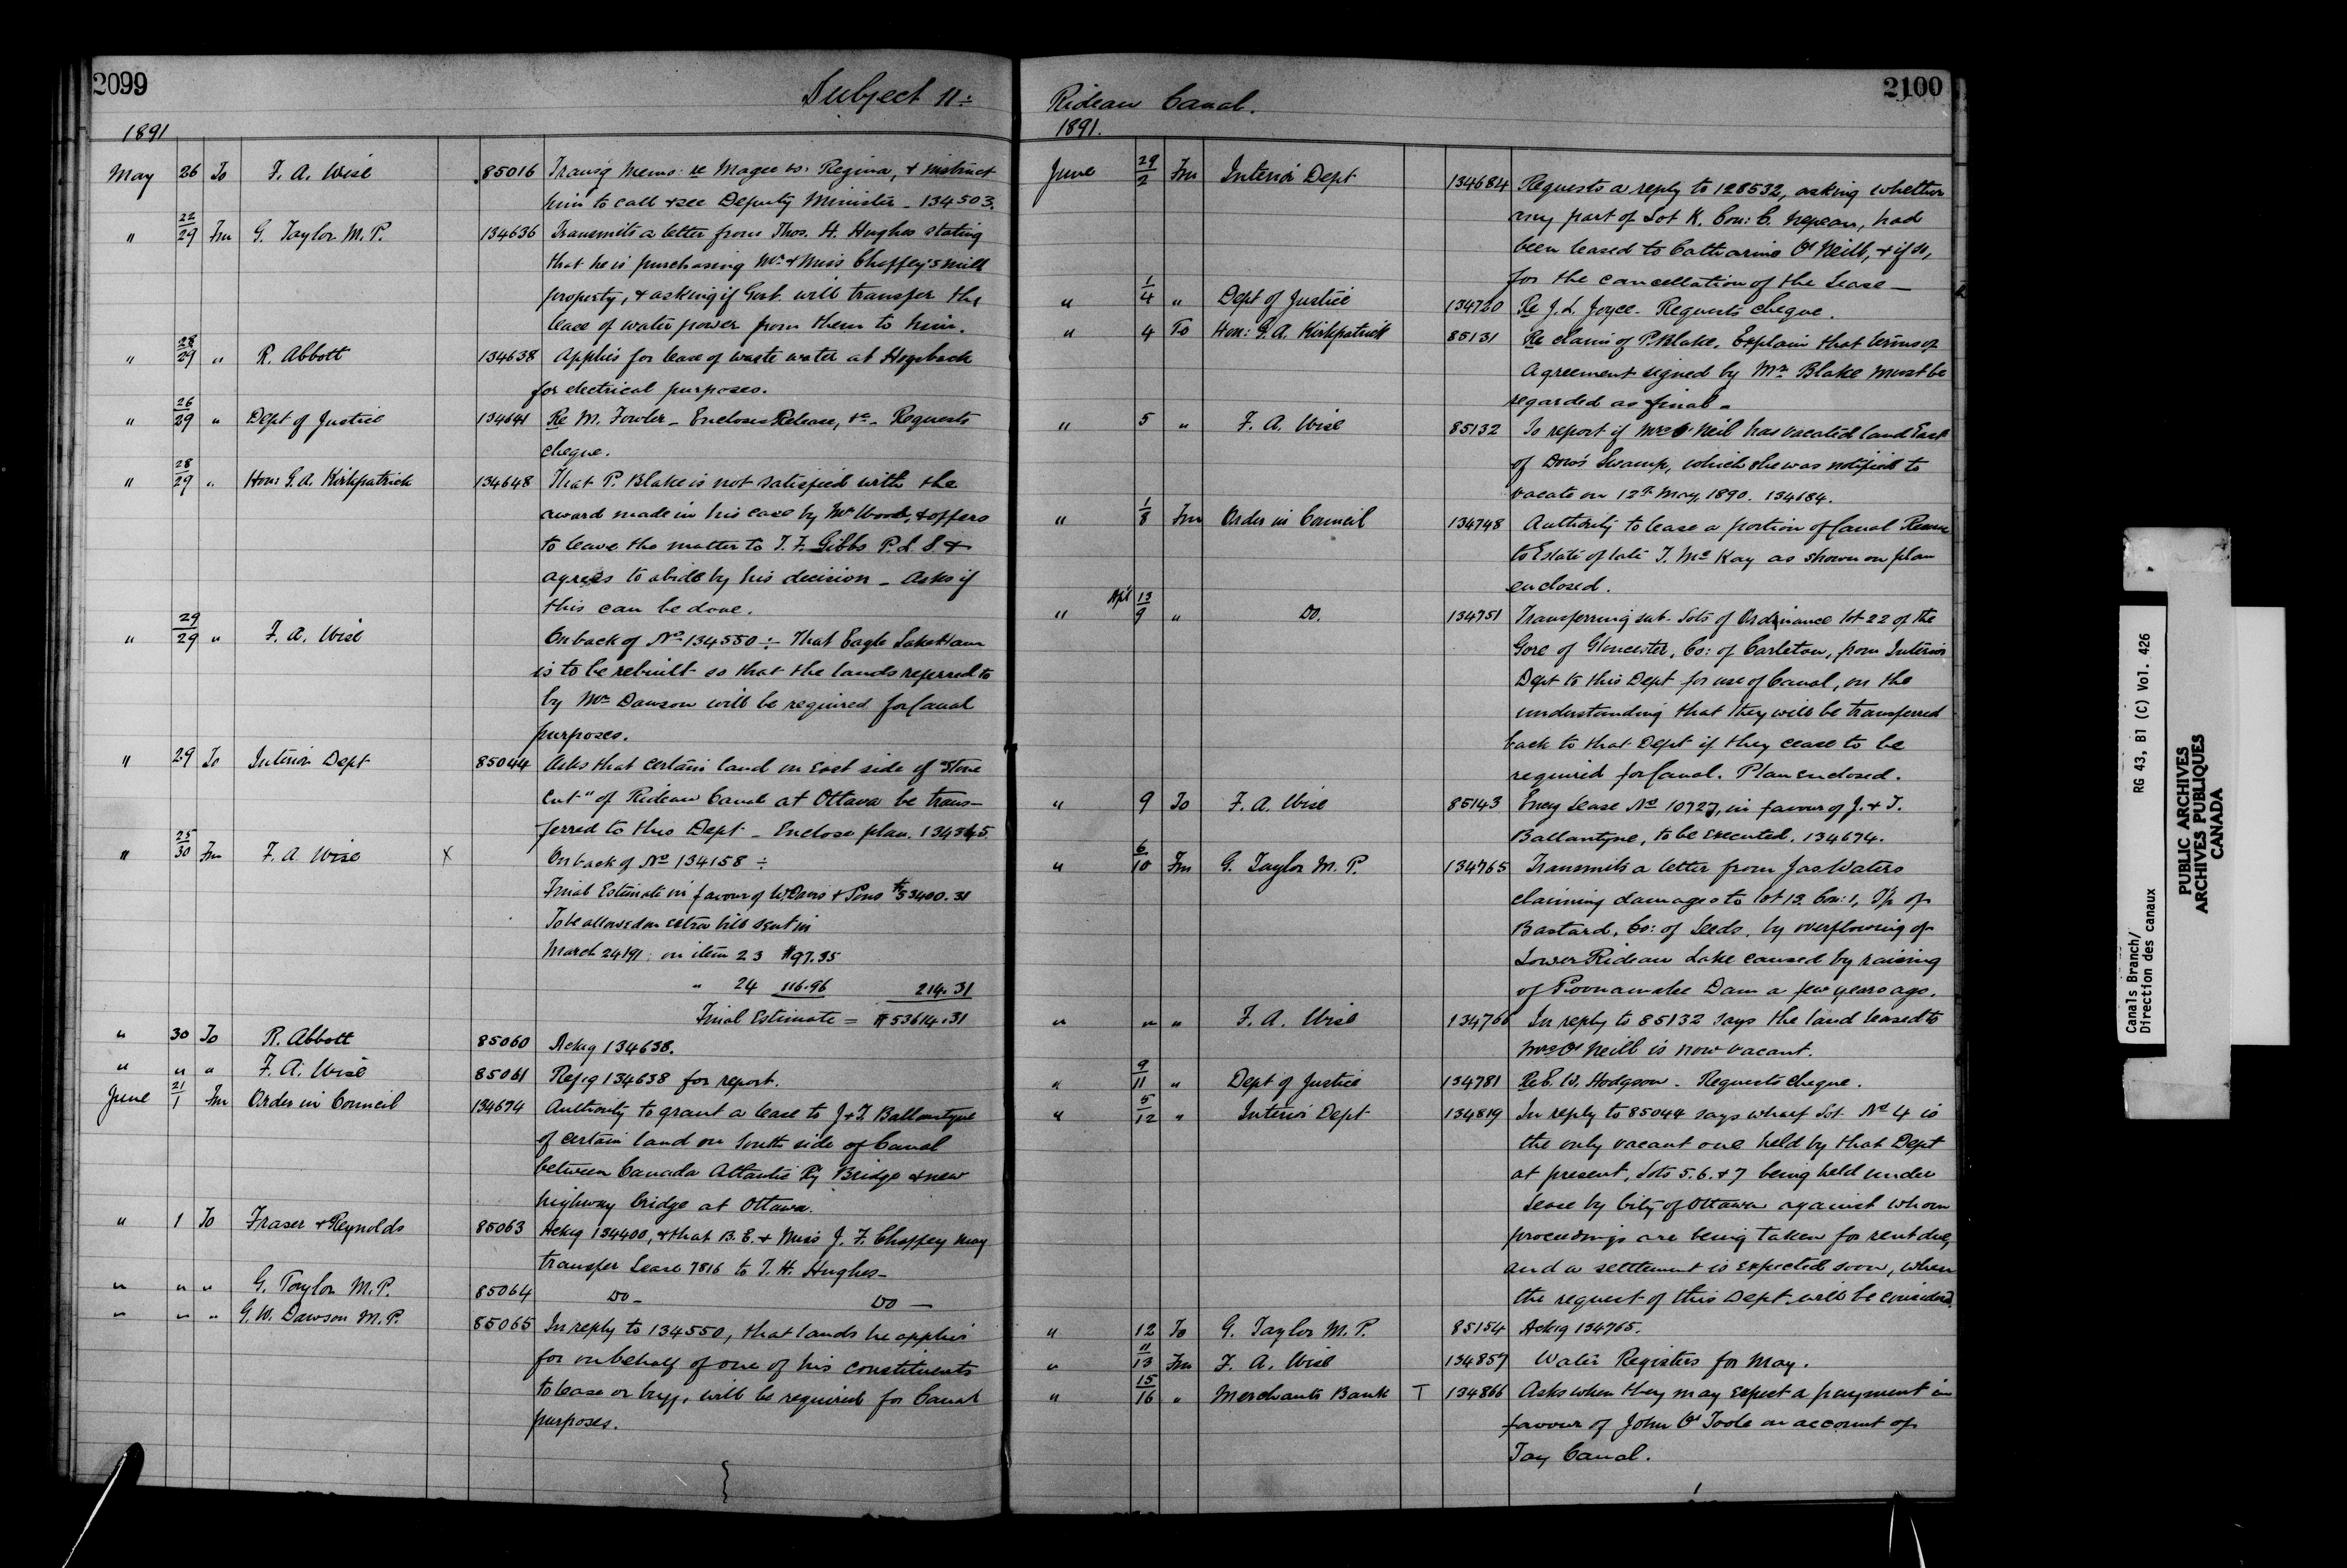 2099
Subject 11:
1891
May 26 To F. A. Wise 85016 Transg Memo: re Magee vs. Regina, & instruct
him to call & see Deputy Minister - 134503.
" 22/29 Fm G. Taylor M.P. 134636 Transmits a letter from Thos. H. Hughes stating
that he is purchasing Mr & Miss Chaffey's mill
property, & asking if Govt. will transfer the
lease of water power from them to him.
" 28/29 " R. Abbott 134638 Applies for lease of waste water at Hogsback
for electrical purposes.
" 26/29 " Dept of Justice 134641 Re M. Fowler - Encloses Release, &c - Requests
cheque.
" 28/29 " Hon: G. A. Kirkpatrick 134648 That P. Blake is not satisfied with the
award made in his case by Mr Wood, & offers
to leave the matter to T. F. Gibbs P.L.S &
agrees to abide by his decision - Asks if
this can be done.
" 29/29 " F. A. Wise On back of No 134550 ÷ That Eagle Lake Dam
is to be rebuilt so that the lands referred to
by Mr Dawson will be required for Canal
purposes.
" 29 To Interior Dept 85044 Asks that certain land on East side of "Stone
Cut" of Rideau Canal at Ottawa be trans-
ferred to this Dept - Enclose plan. 134545
" 25/30 Fm F. A. Wise X On back of No 134158 ÷
Final Estimate in favour of W. Davis & Sons $53400.31
To be allowed on extra bill sent in
March 24/91: on item 23 $97.35
" 24 116.96 214.31
Final Estimate = $53614.31
" 30 To R. Abbott 85060 Ackg 134638.
" " " F. A. Wise 85061 Refg 134638 for report.
June 21/1 Fm Order in Council 134674 Authority to grant a lease to J & T Ballantyne
of certain land on South side of Canal
between Canada Atlantic Ry Bridge & new
highway bridge at Ottawa.
" 1 To Fraser & Reynolds 85063 Ackg 134400, & that B. E. & Miss J. F. Chaffey may
transfer Lease 7816 to T. H. Hughes -
" " " G. Taylor M.P. 85064 Do - Do -
" " " G. W. Dawson M.P. 85065 In reply to 134550, that lands he applies
for on behalf of one of his constituents
to lease or buy, will be required for Canal
purposes.
2100
Rideau Canal.
1891.
June 29/2 Fm Interior Dept 134684 Requests a reply to 128532, asking whether
any part of Lot K. Con: C. Nepean, had
been leased to Catharine O'Neill, & if so,
for the cancellation of the Lease -
" 1/4 " Dept of Justice 134720 Re J. L. Joyce - Requests cheque.
" 4 To Hon: G. A. Kirkpatrick 85131 Re claim of P. Blake. Explain that terms of
Agreement signed by Mr Blake must be
regarded as final.
" 5 " F. A. Wise 85132 To report if Mrs O'Neil has vacated land East
of Dow's Swamp, which she was notified to
vacate on 12th May, 1890. 134684.
" 1/8 Fm Order in Council 134748 Authority to lease a portion of Canal Reserve
to Estate of late T. McKay as shown on plan
enclosed.
" Apl 13/9 " Do. 134751 Transferring sub-Lots of Ordinance lot 22 of the
Gore of Gloucester, Co: of Carleton, from Interior
Dept to this Dept for use of Canal, on the
understanding that they will be transferred
back to that Dept if they cease to be
required for Canal. Plan enclosed.
" 9 To F. A. Wise 85143 Encg Lease No 10727, in favour of J. & T.
Ballantyne, to be executed. 134674.
" 6/10 Fm G. Taylor M.P. 134765 Transmits a letter from Jas Waters
claiming damages to lot 12. Con: 1, T/p of
Bastard, Co: of Leeds, by overflowing of
Lower Rideau Lake caused by raising
of Poonamalee Dam a few years ago.
" " " F. A. Wise 134766 In reply to 85132 says the land leased to
Mrs O'Neill is now vacant.
" 9/11 " Dept of Justice 134781 Re E. W. Hodgson - Requests cheque.
" 5/12 " Interior Dept 134819 In reply to 85044 says wharf Lot No 4 is
the only vacant one held by that Dept
at present, Lots 5. 6. & 7 being held under
Lease by City of Ottawa against whom
proceedings are being taken for rent due,
and a settlement is expected soon, when
the request of this Dept will be considered.
" 12 To G. Taylor M.P. 85154 Ackg 134765.
" 11/13 Fm F. A. Wise 134857 Water Registers for May.
" 15/16 " Merchants Bank T 134866 Asks when they may expect a payment in
favour of John O'Toole on account of
Tay Canal.
Canals Branch/ RG 43, B1 (C) Vol. 426
Direction des canaux
PUBLIC ARCHIVES
ARCHIVES PUBLIQUES
CANADA